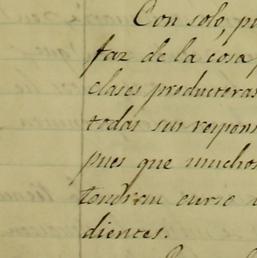 Con solo, pu
faz de la cosa p
clases productoras
todas sus respons
pues que muchos
tendran curso
dientes.